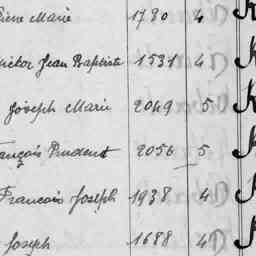 Pierre Marie 1780 4
Victor Jean Baptiste 1531 4
Joseph Marie 2049 5
François Prudent 2056 5
Francois Joseph 1938 4
Joseph 1688 4